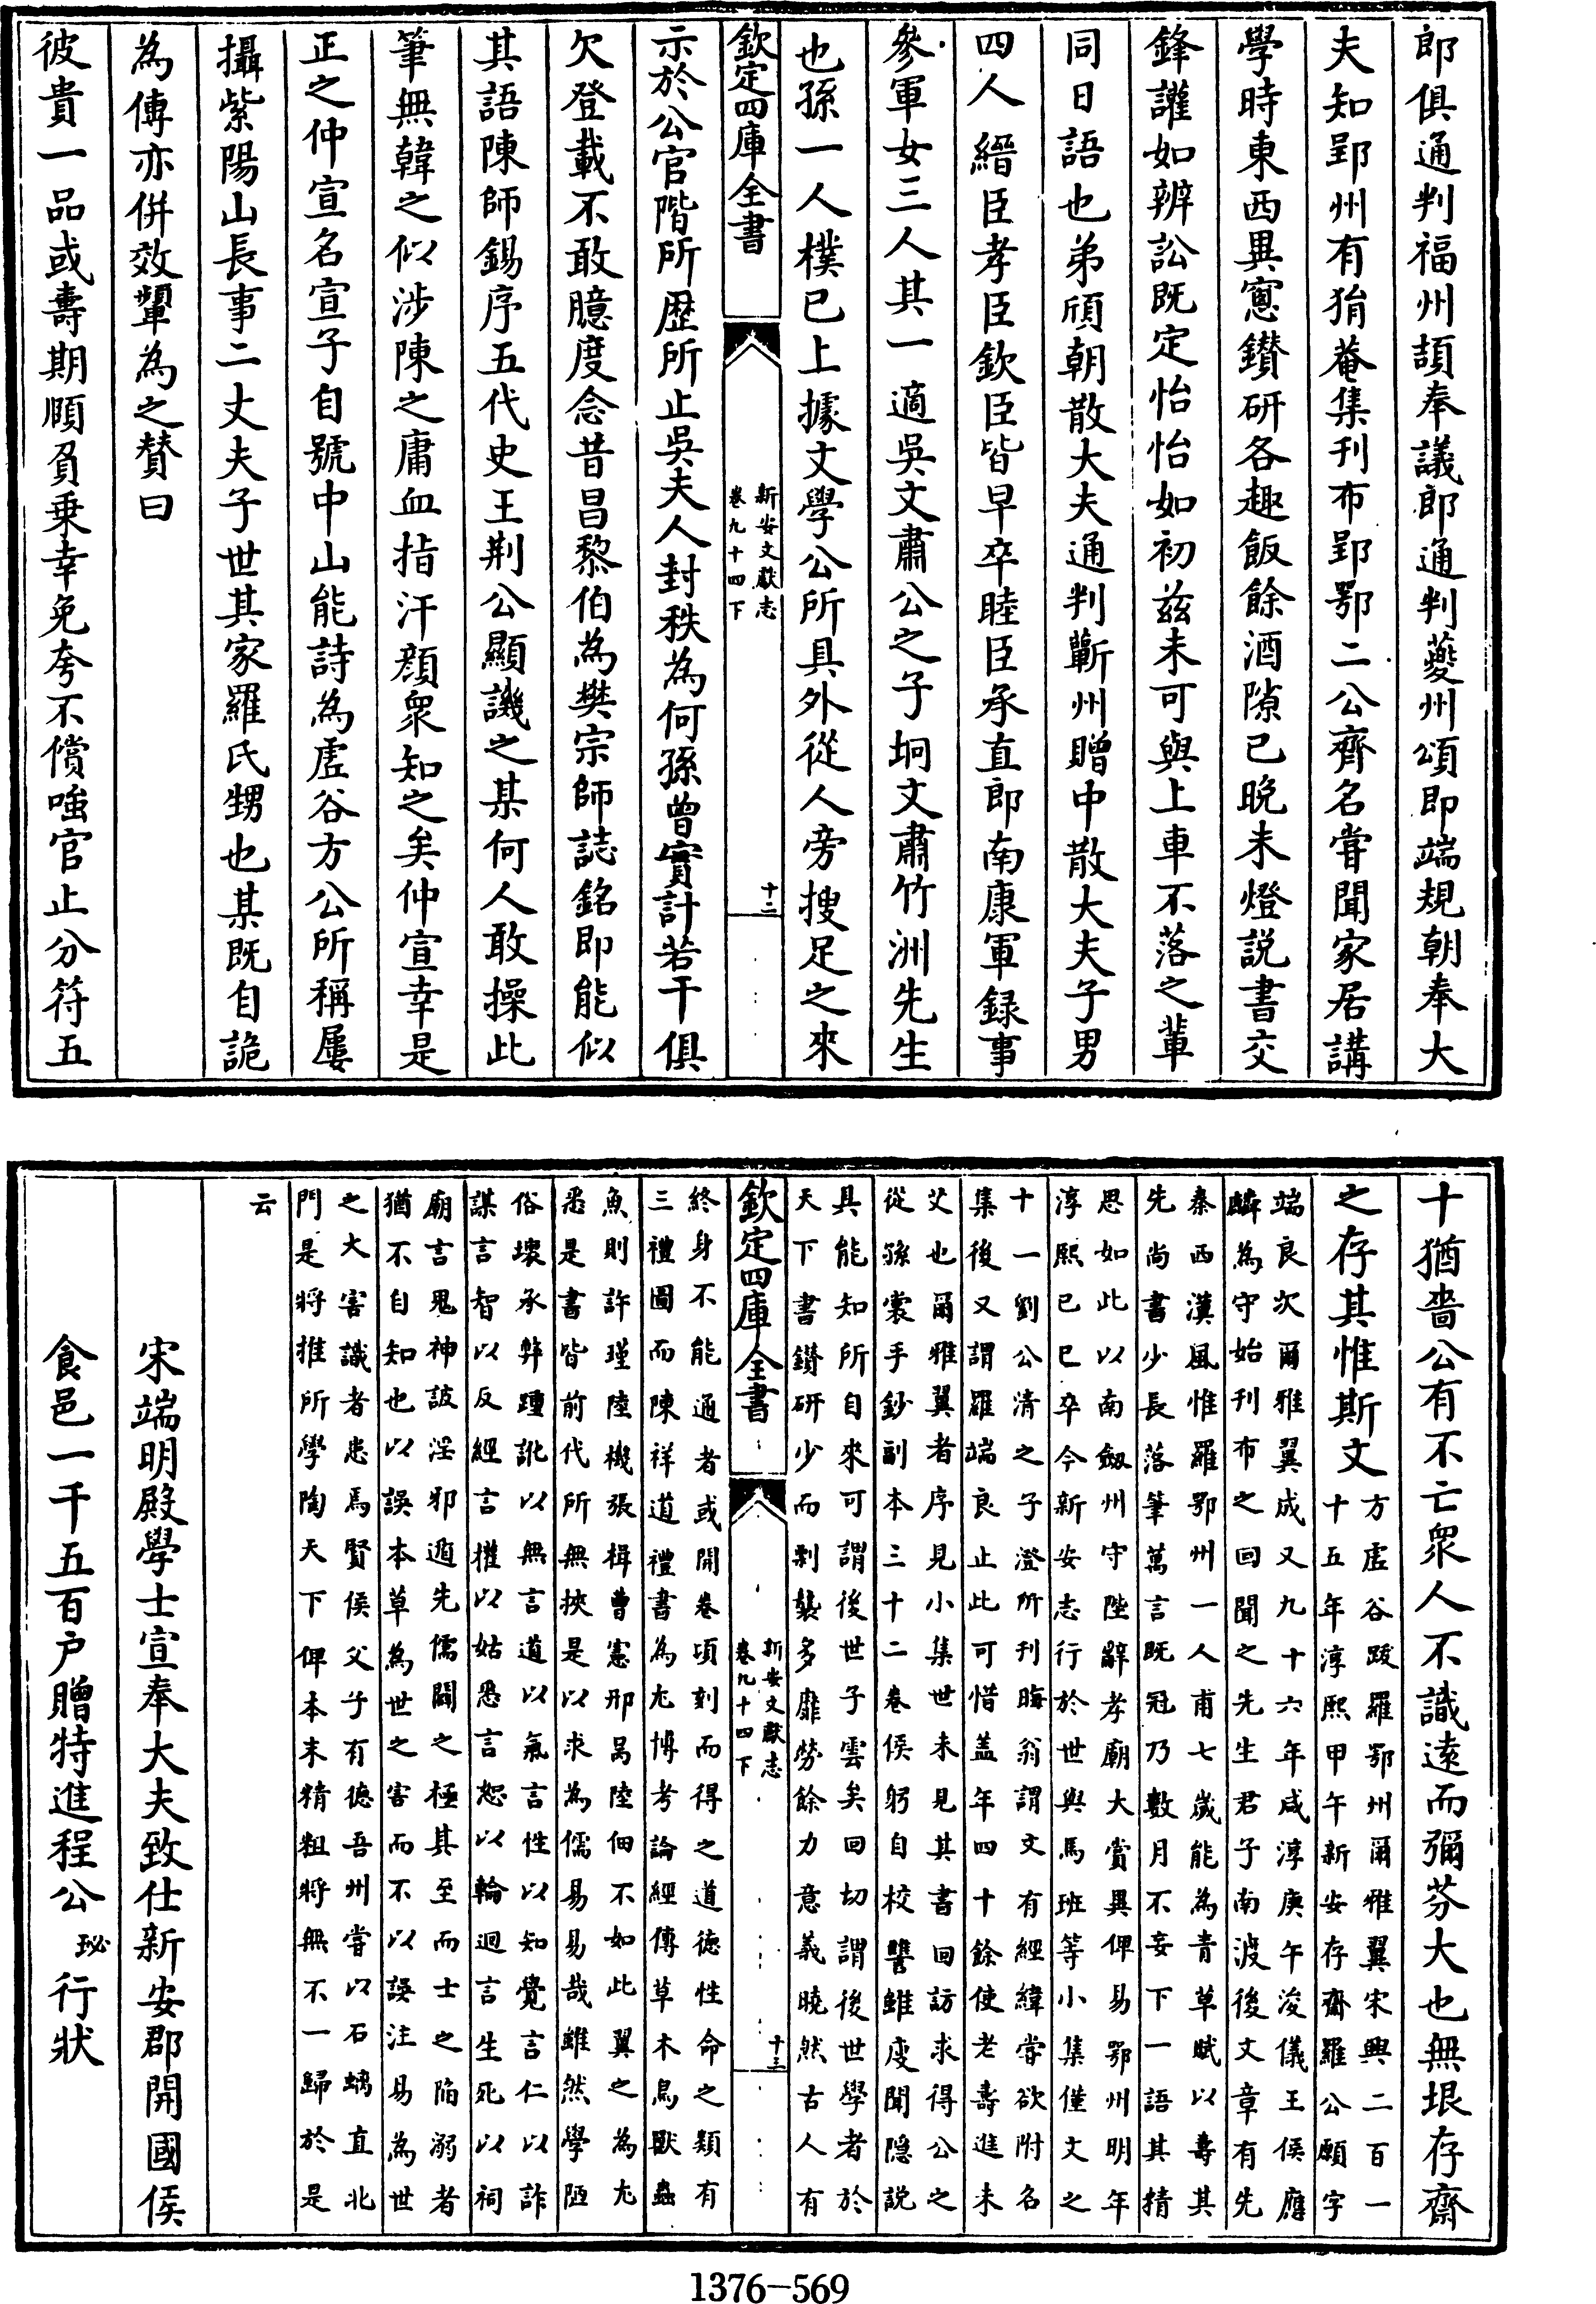 郎俱通判福州頡奉議郎通判夔州頌即端規朝奉大
夫知郢州有狷菴集刊布郢鄂二公齊名甞聞家居講
學時東西異窻鑽研各趣飯餘酒隙已晩未燈説書交
鋒讙如辨訟既定怡怡如初兹未可與上車不落之輩
同日語也弟頎朝散大夫通判蘄州贈中散大夫子男
四人縉臣孝臣欽臣皆早卒睦臣承直郎南康軍録事
參軍女三人其一適吳文肅公之子垌文肅竹洲先生
也孫一人樸已上據文學公所具外從人旁搜足之來
欽定四庫全書
新安文獻志
卷九十四下
十二
示於公官階所歴所止吳夫人封秩為何孫曾實計若干俱
欠登載不敢臆度念昔昌黎伯為樊宗師誌銘即能似
其語陳師錫序五代史王荆公顯譏之某何人敢操此
筆無韓之似渉陳之庸血指汗顔衆知之矣仲宣幸是
正之仲宣名宣子自號中山能詩為虚谷方公所稱屢
攝紫陽山長事二丈夫子世其家羅氏甥也某既自詭
為傳亦併效顰為之賛曰
彼貴一品或夀期頤負乗幸免夸不償嗤官止分符五
十猶嗇公有不亡衆人不識逺而彌芬大也無垠存齋
之存其惟斯文
方虚谷跋羅鄂州爾雅翼宋興二百一
十五年淳熙甲午新安存齋羅公願字
端良次爾雅翼成又九十六年咸淳庚午浚儀王侯應
麟為守始刊布之回聞之先生君子南渡後文章有先
秦西漢風惟羅鄂州一人甫七歳能為青草賦以夀其
先尚書少長落筆萬言既冠乃數月不妄下一語其精
思如此以南劔州守陛辭孝廟大賞異俾易鄂州明年
淳熙已巳卒今新安志行於世與馬班等小集僅文之
十一劉公清之子澄所刊晦翁謂文有經緯甞欲附名
集後又謂羅端良止此可惜盖年四十餘使老夀進未
艾也爾雅翼者序見小集世未見其書回訪求得公之
從孫裳手鈔副本三十二卷侯躬自校讐雖廋聞隠説
具能知所自來可謂後世子雲矣回切謂後世學者於
天下書鑚研少而剽襲多靡勞餘力意義曉然古人有
欽定四庫全書
新安文獻志
卷九十四下
十三
終身不能通者或開卷頃刻而得之道德性命之類有
三禮圖而陳祥道禮書為尤博考論經傳草木鳥獸蟲
魚則許瑾陸機張楫曹憲邢昺陸佃不如此翼之為尤
悉是書皆前代所無挾是以求為儒易易哉雖然學陋
俗壞承弊踵訛以無言道以氣言性以知覺言仁以詐
謀言智以反經言權以姑息言恕以輪迴言生死以祠
廟言鬼神詖淫邪遁先儒闢之極其至而士之陷溺者
猶不自知也以誤本草為世之害而不以誤注易為世
之大害識者患焉賢侯父子有德吾州甞以石螭直北
門是將推所學陶天下俾本末精粗將無不一歸於是
云
宋端明殿學士宣奉大夫致仕新安郡開國侯
食邑一千五百户贈特進程公珌行狀
1376-569